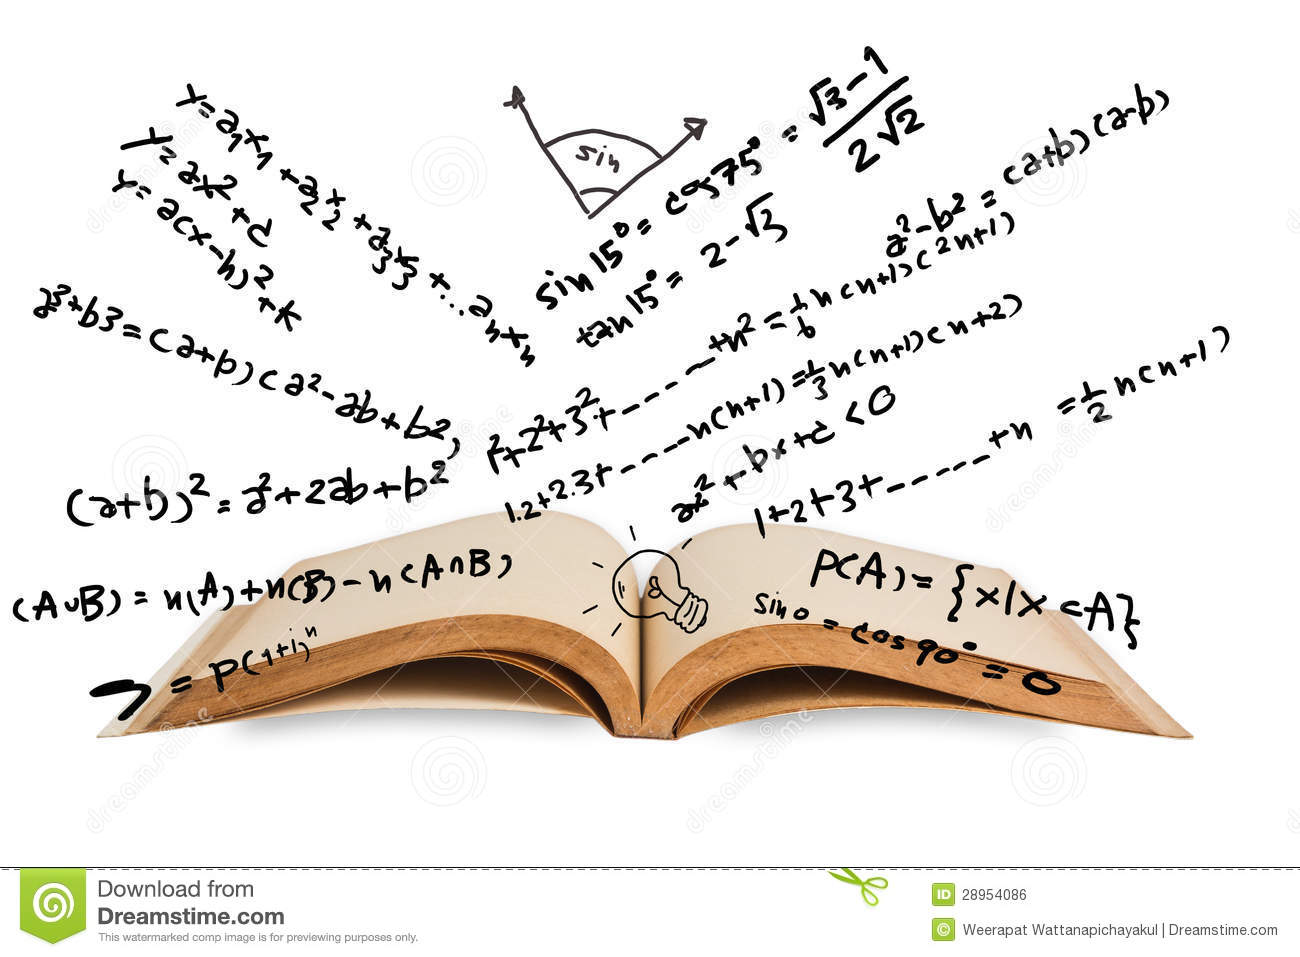 x = a₁x₁ + a₂x₂ + a₃x₃ + ... aₙxₙ
y = ax² + c
y = a(x-h)² + k
sin
sin 15° = cos 75° = (√3-1)/(2√2)
tan 15° = 2-√3
a²-b² = (a+b)(a-b)
a³+b3 = (a+b)(a²-ab+b²)
1²+2²+3²+------+n² = 1/6 n(n+1)(2n+1)
1.2+2.3+-----n(n+1) = 1/3 n(n+1)(n+2)
ax²+bx+c<0
1+2+3+------+n = 1/2 n(n+1)
(a+b)² = a²+2ab+b²
(A∪B) = n(A)+n(B)-n(A∩B)
P(A) = {x|x⊂A}
sin 0 = cos 90° = 0
= P(1+i)ⁿ
Download from
Dreamstime.com
This watermarked comp image is for previewing purposes only.
ID 28954086
© Weerapat Wattanapichayakul | Dreamstime.com